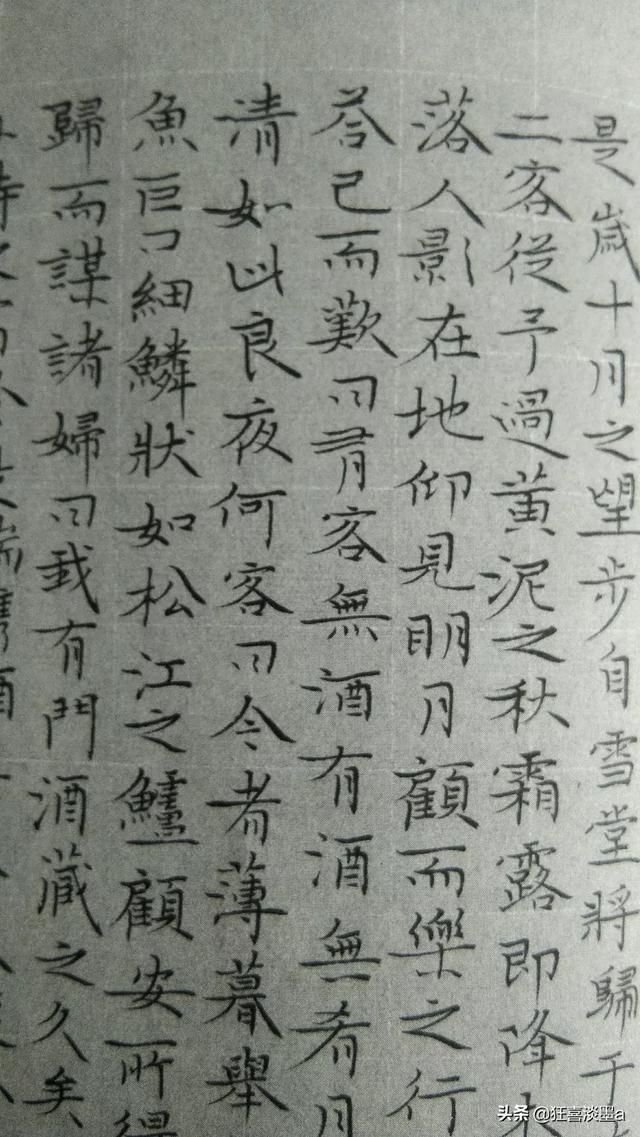 是歲十月之望步自雪堂將歸于
二客從予過黃泥之秋霜露即降
落人影在地仰見明月顧而樂之行
荅已而歎曰有客無酒有酒無肴月
清如此良夜何客曰今者薄暮舉
魚巨口細鱗狀如松江之鱸顧安所得
歸而謀諸婦曰我有門酒藏之久矣
头条 @狂喜淡墨a